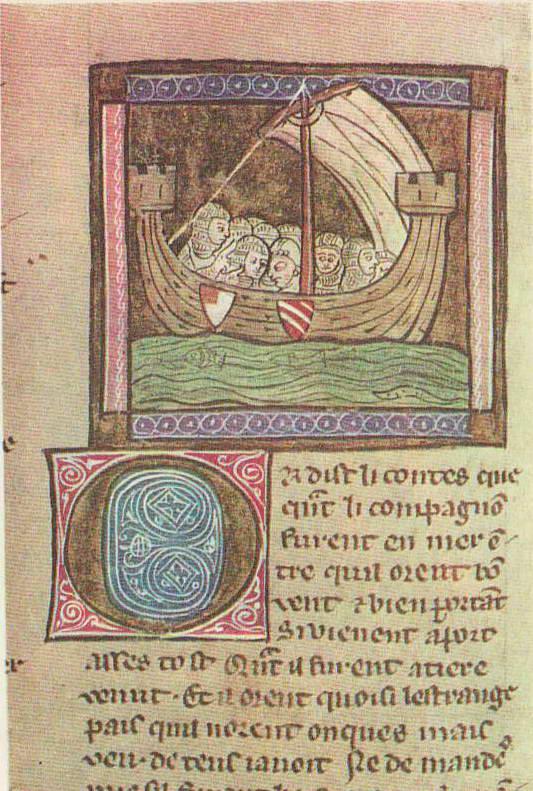 Or dist li contes que
qūt li compaignō
furent en mer ē
tre quil orent bō
vent ⁊ bien portāt
Si vienent a port
asses tost Qūt il furent a terre
venut · Et il orent quoisi lestrange
pais quil norent onques mais
veu · de teus iauoit Ne demandē